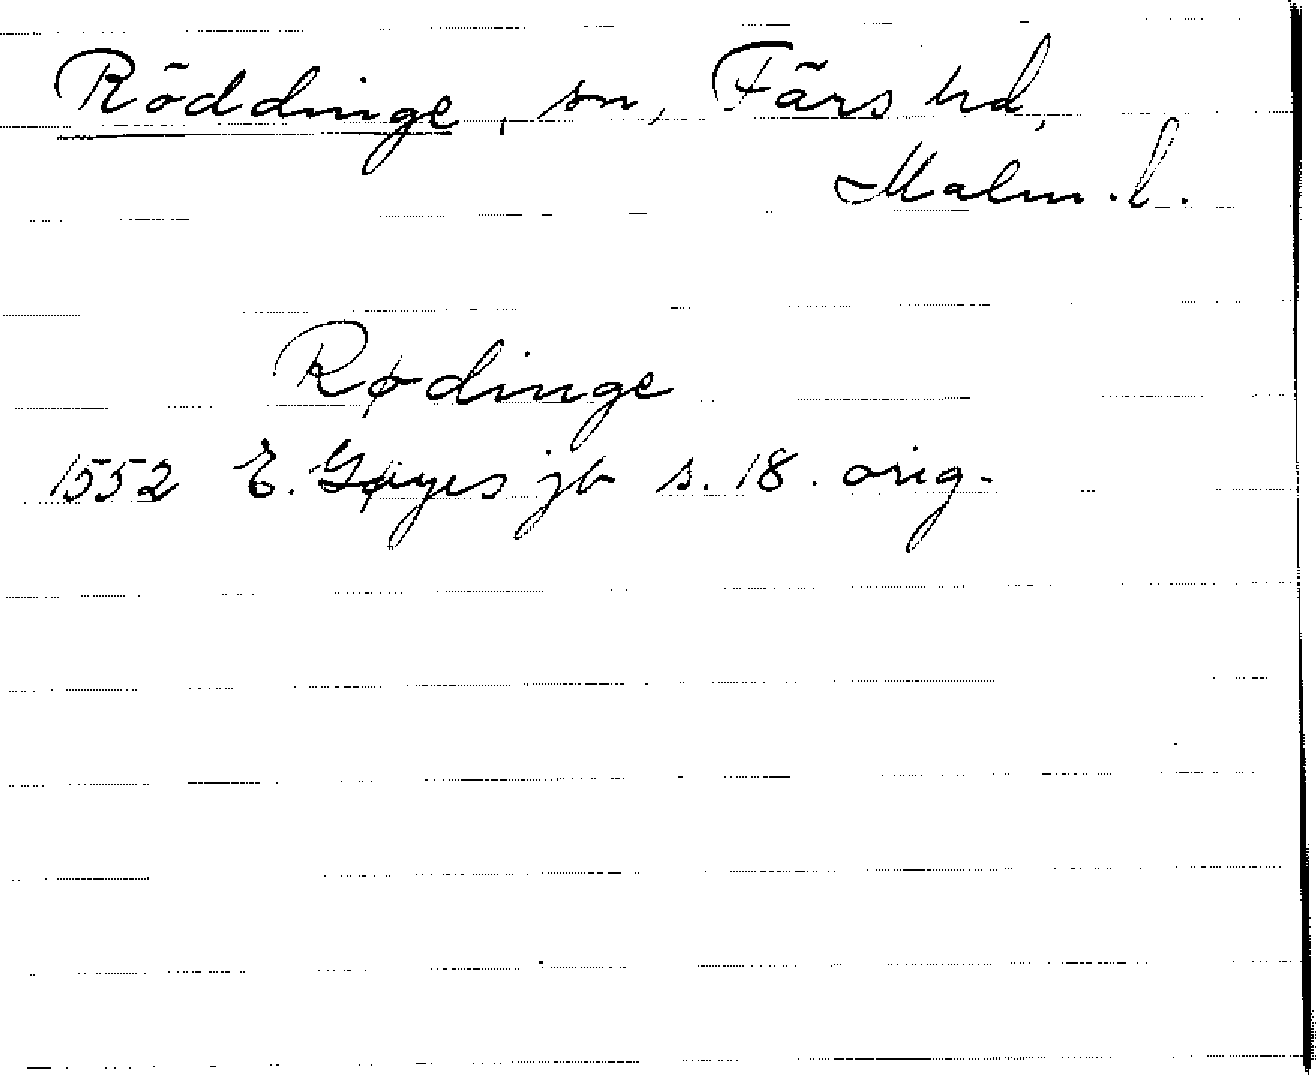 Röddinge, sn, Färs hd,
Malm. l.
Rødinge
1552 E. Gøyes jb s. 18. orig.